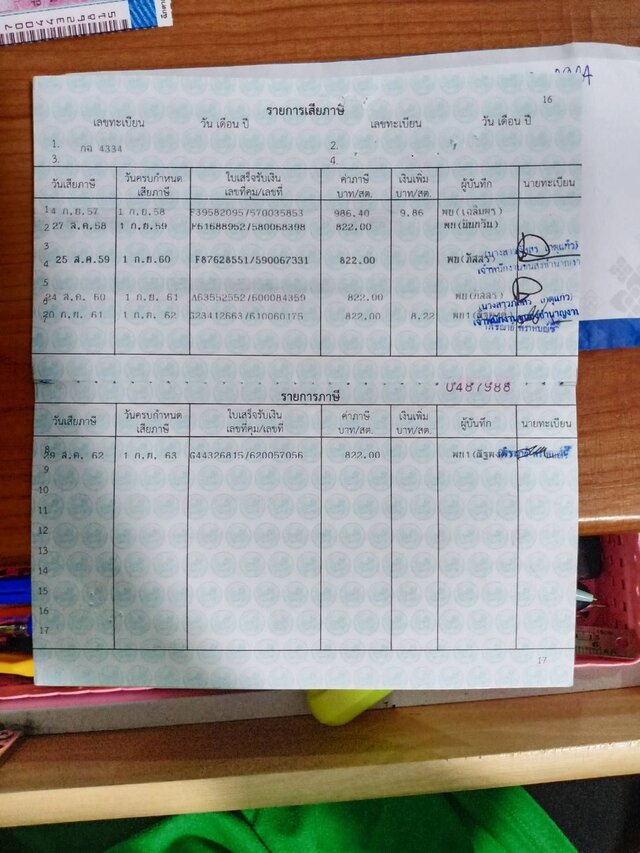 16
รายการเสียภาษี
เลขทะเบียน วัน เดือน ปี เลขทะเบียน วัน เดือน ปี
1. กฉ 4334 2.
3. 4.
วันเสียภาษี วันครบกำหนดเสียภาษี ใบเสร็จรับเงิน เลขที่คุม/เลขที่ ค่าภาษี บาท/สต. เงินเพิ่ม บาท/สต. ผู้บันทึก นายทะเบียน
1 4 ก.ย.57 1 ก.ย.58 F39582095/570035853 986.40 9.86 พย(เฉลิมพร)
2 27 ส.ค.58 1 ก.ย.59 F61688952/580068398 822.00
3
4 25 ส.ค.59 1 ก.ย.60 F87628551/590067331 822.00 พย(ภัสสร)
5
6 24 ส.ค. 60 1 ก.ย. 61 A63552552/600084359 822.00 พย(ภัสสร)
7 20 ก.ย. 61 1 ก.ย. 62 G23412663/610060175 822.00 8.22
0487988
รายการภาษี
วันเสียภาษี วันครบกำหนดเสียภาษี ใบเสร็จรับเงิน เลขที่คุม/เลขที่ ค่าภาษี บาท/สต. เงินเพิ่ม บาท/สต. ผู้บันทึก นายทะเบียน
8 29 ส.ค. 62 1 ก.ย. 63 G44326815/620057056 822.00
9
10
11
12
13
14
15
16
17
17